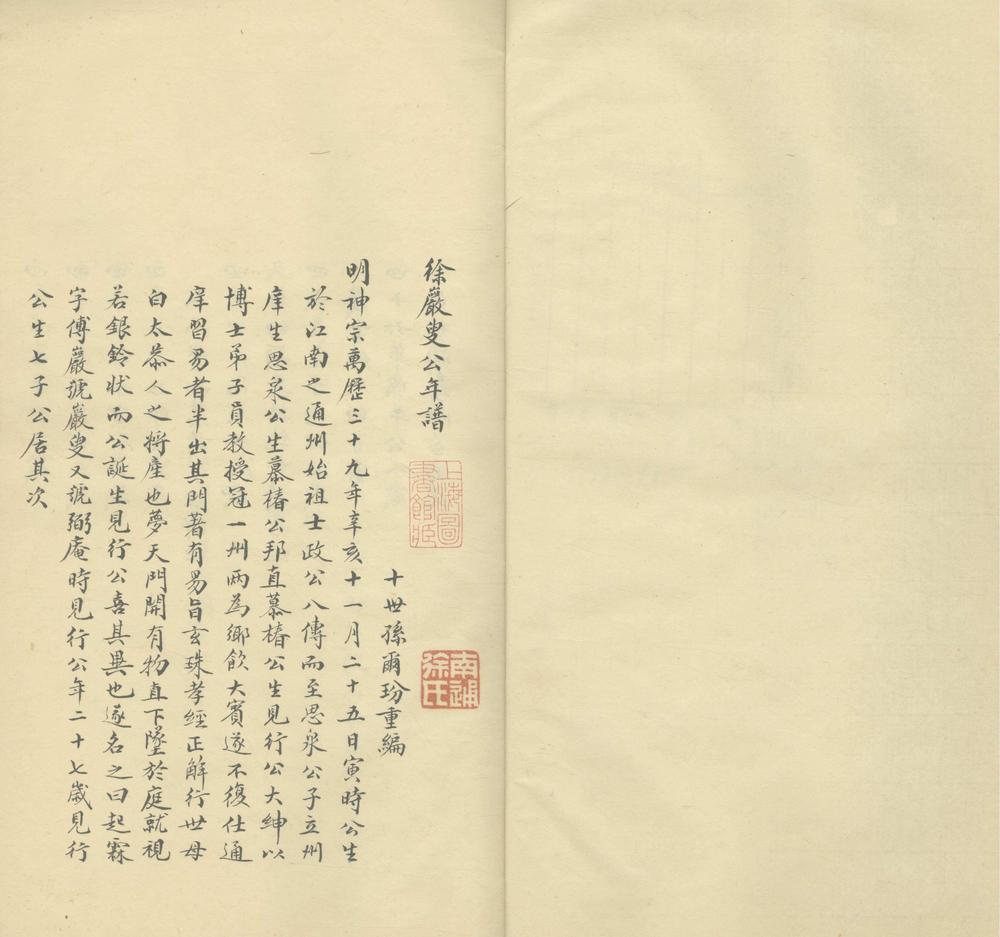 徐巖叟公年譜
上海圖書館藏
十世孫爾玢重編
南通徐氏
明神宗萬歷三十九年辛亥十一月二十五日寅時公生
於江南之通州始祖士政公八傳而至思泉公子立州
庠生思泉公生慕椿公邦直慕椿公生見行公大紳以
博士弟子員教授冠一州兩為鄉飲大賓遂不復仕通
庠習易者半出其門著有易旨玄珠孝經正解行世母
白太恭人之將產也夢天門開有物直下墜於庭就視
若銀鈴狀而公誕生見行公喜其異也遂名之曰起霖
字傅巖號巖叟又號弼庵時見行公年二十七歲見行
公生七子公居其次